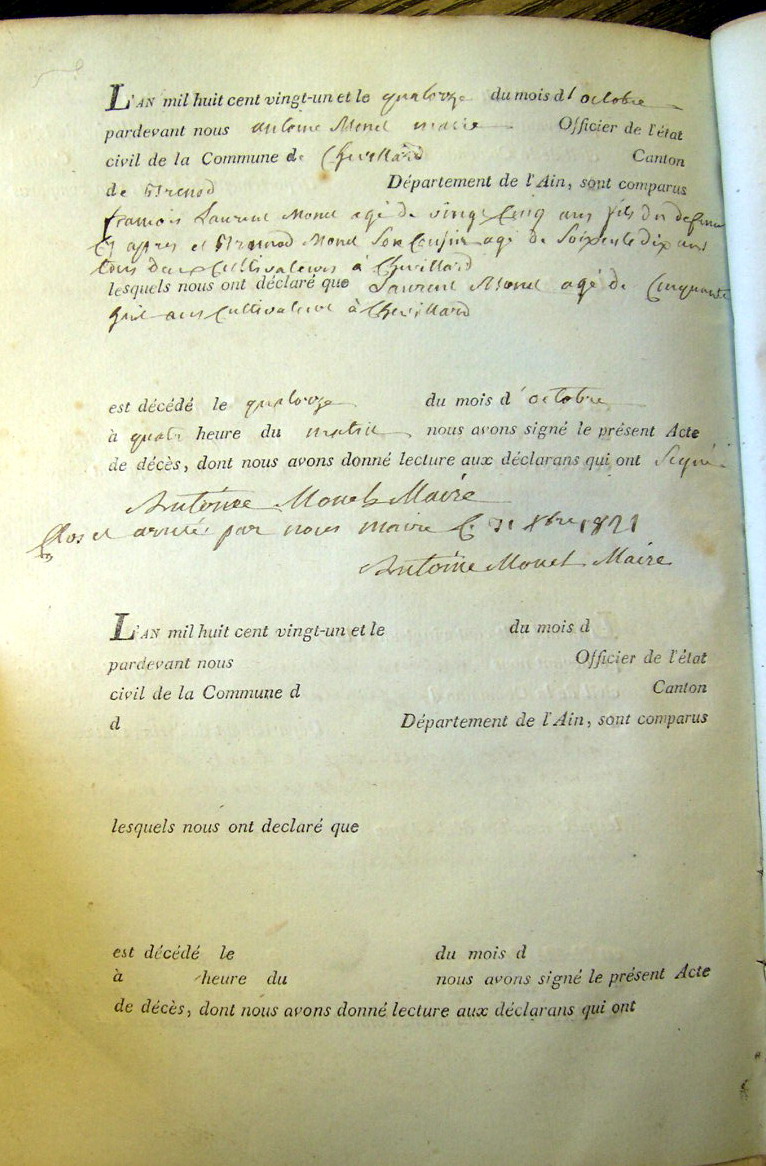 L'AN mil huit cent vingt-un et le quatorze du mois d'octobre
pardevant nous antoine Monet maire Officier de l'état
civil de la Commune de Chevillard Canton
de Brenod Département de l'Ain, sont comparus
francois Laurent Monet agé de vingt Cinq ans fils du defunt
Cy apres et Monet Son Cousin agé de Soixente dix ans
tous deux Cultivateurs à Chevillard
lesquels nous ont déclaré que Laurent Monet agé de Cinquante
huit ans Cultivateur à Chevillard
est décédé le quatorze du mois d'octobre
à quatre heure du matin nous avons signé le présent Acte
de décès, dont nous avons donné lecture aux déclarans qui ont Signé
Antoine Monet Maire
Clos et arreté par nous maire le 31 Xbre 1821
Antoine Monet Maire
L'AN mil huit cent vingt-un et le du mois d
pardevant nous Officier de l'état
civil de la Commune d Canton
d Département de l'Ain, sont comparus
lesquels nous ont declaré que
est décédé le du mois d
à heure du nous avons signé le présent Acte
de décès, dont nous avons donné lecture aux déclarans qui ont